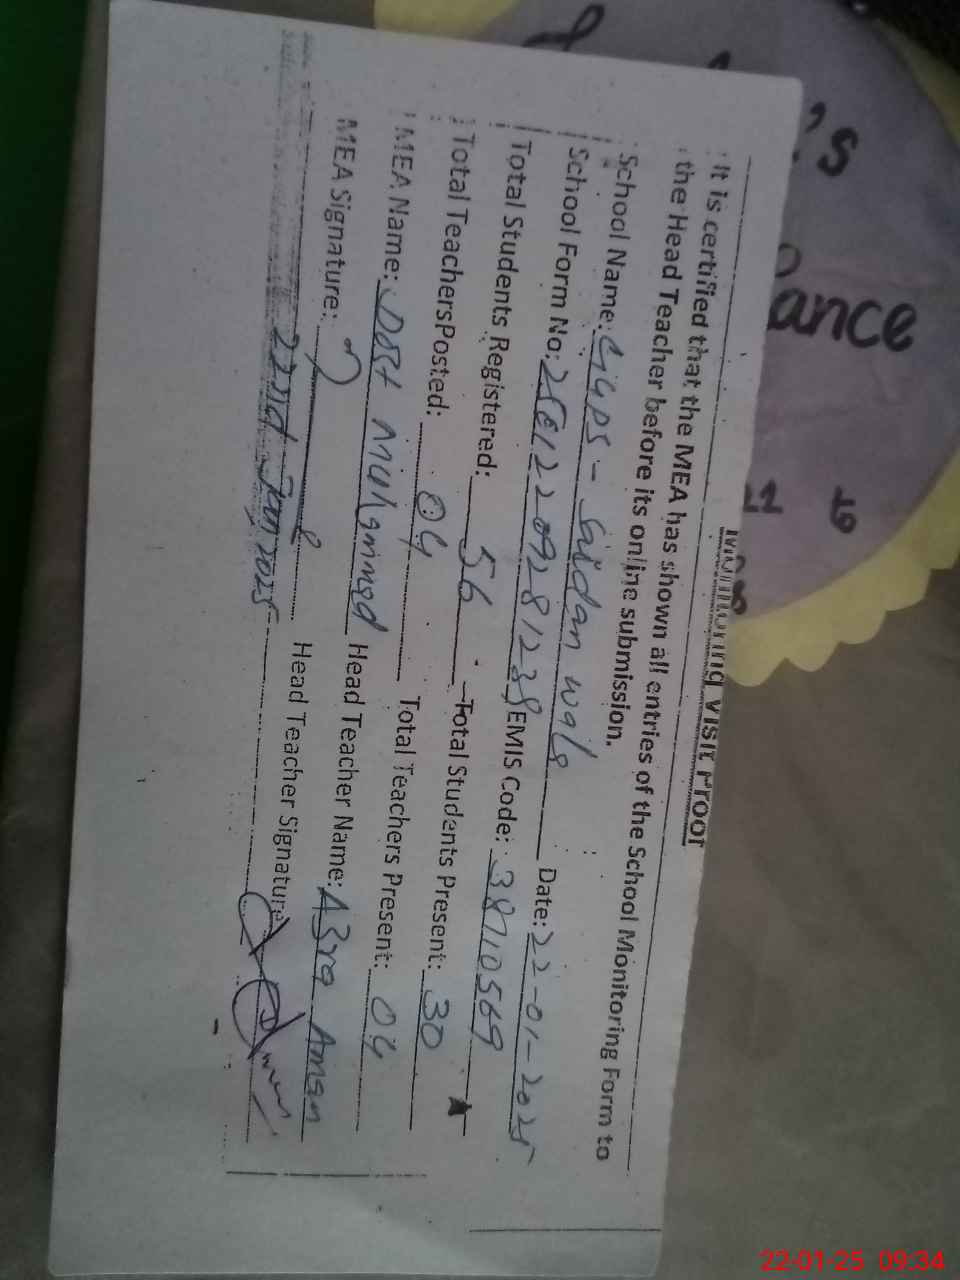 Monitoring Visit Proof
It is certified that the MEA has shown all entries of the School Monitoring Form to
the Head Teacher before its online submission.
School Name: GGPS - Saidan wala Date: 22-01-2025
School Form No: EMIS Code: 38710569
Total Students Registered: 56 Total Students Present: 30
Total TeachersPosted: 04 Total Teachers Present: 04
MEA Name: Dost Muhammad Head Teacher Name: Aman
MEA Signature: Head Teacher Signature
22nd Jan 2025
's
ance
22-01-25 09:34